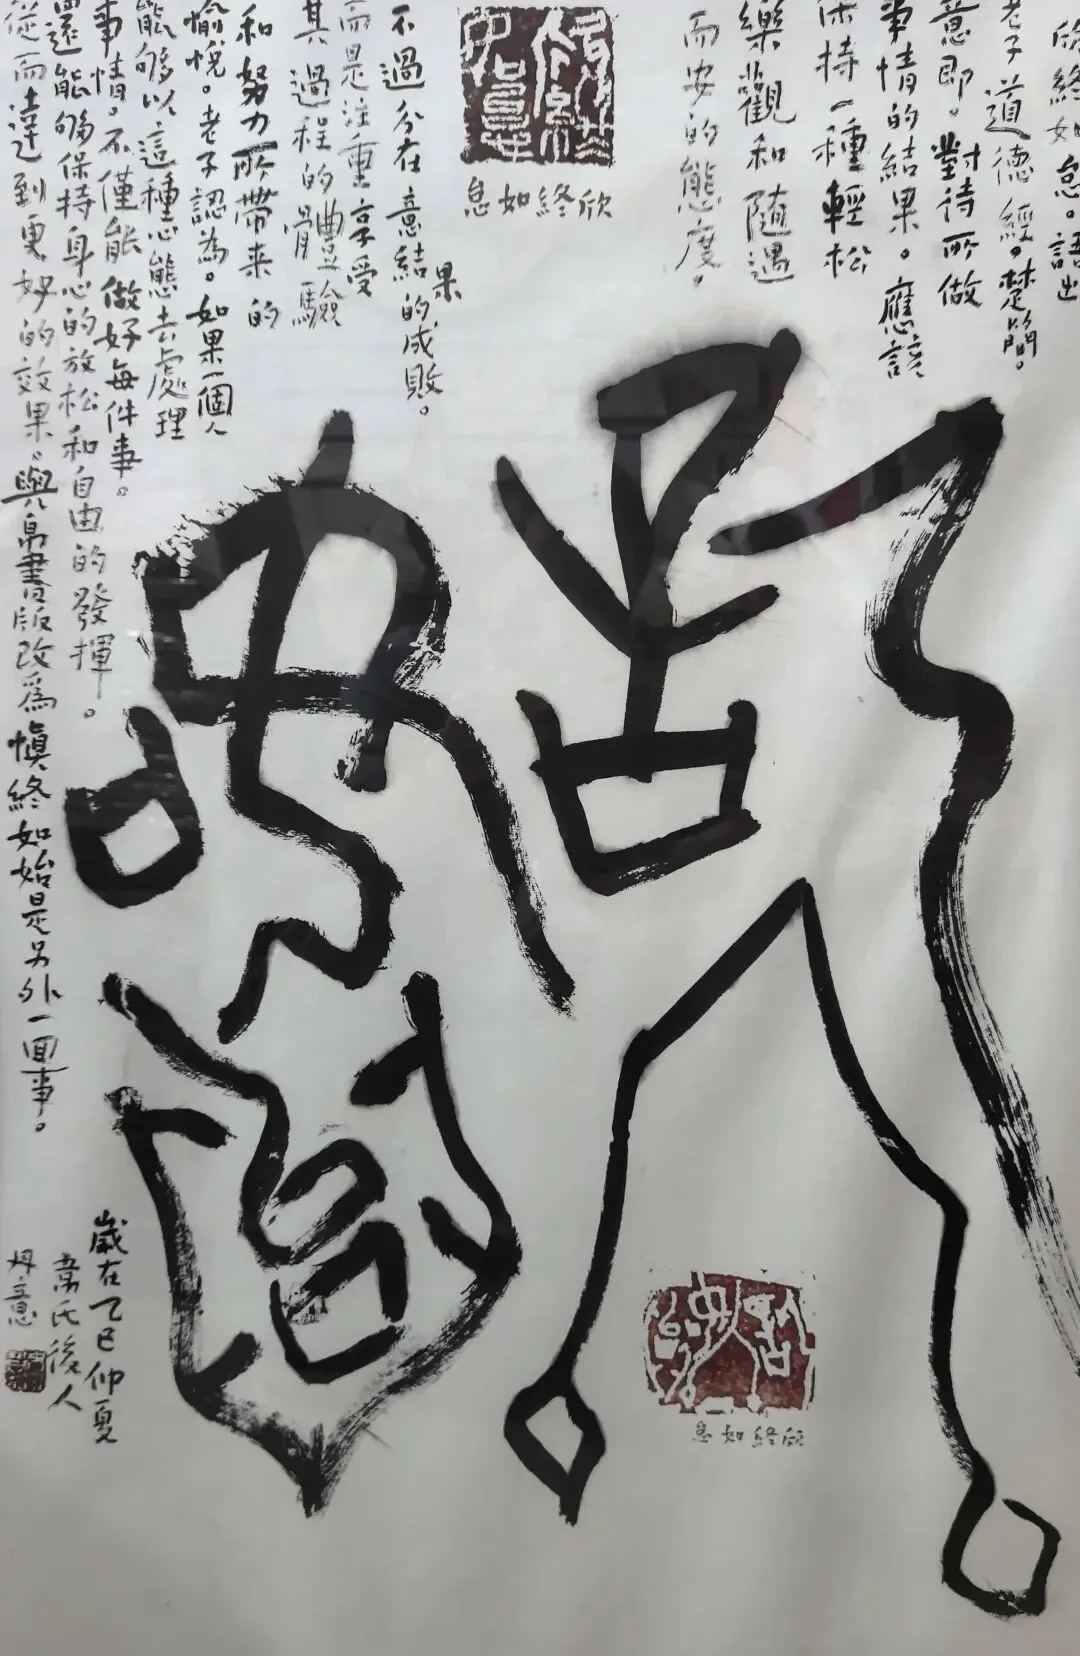 欣終如怠。語出
老子道德經。楚簡。
意即。對待所做
事情的結果。應該
保持一種輕松
樂觀和隨遇
而安的態度。
欣終如怠
不過分在意結果的成敗。
而是注重享受
其過程的體驗
和努力所帶來的
愉悅。老子認為。如果一個人
能够以這種心態去處理
事情。不僅能做好每件事。
還能够保持身心的放松和自由的發揮。
從而達到更好的效果。與帛書版改爲慎終如始是另外一回事。
歲在乙巳仲夏
韋氏後人
丹意
欣終如怠